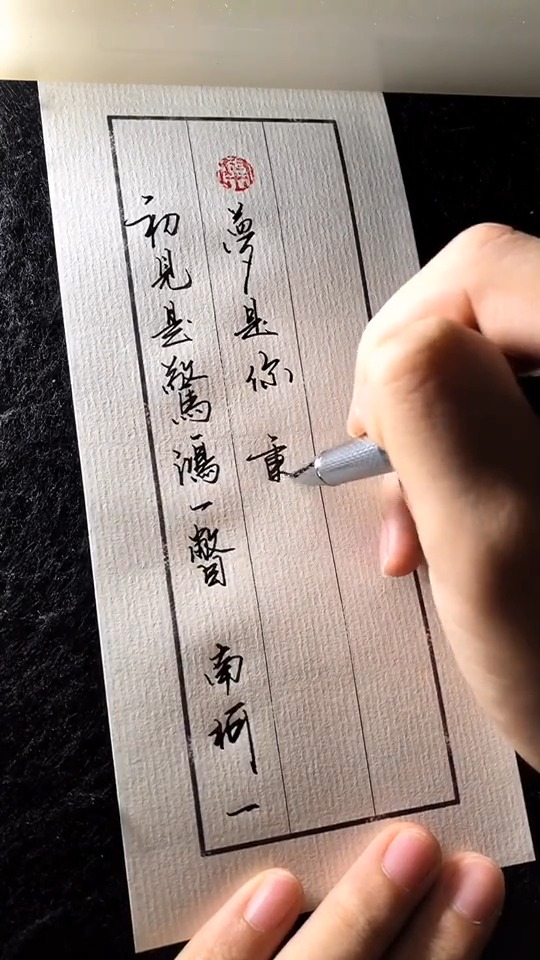 初見是驚鴻一瞥 南柯一
夢是你 重